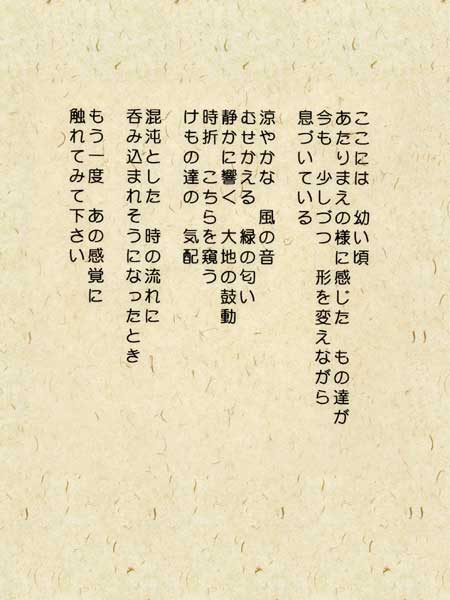 ここには　幼い頃
あたりまえの様に感じた　もの達が
今も　少しづつ　形を変えながら
息づいている
涼やかな　風の音
むせかえる　緑の匂い
静かに響く　大地の鼓動
時折　こちらを窺う
けもの達の　気配
混沌とした　時の流れに
呑み込まれそうになったとき
もう一度　あの感覚に
触れてみて下さい